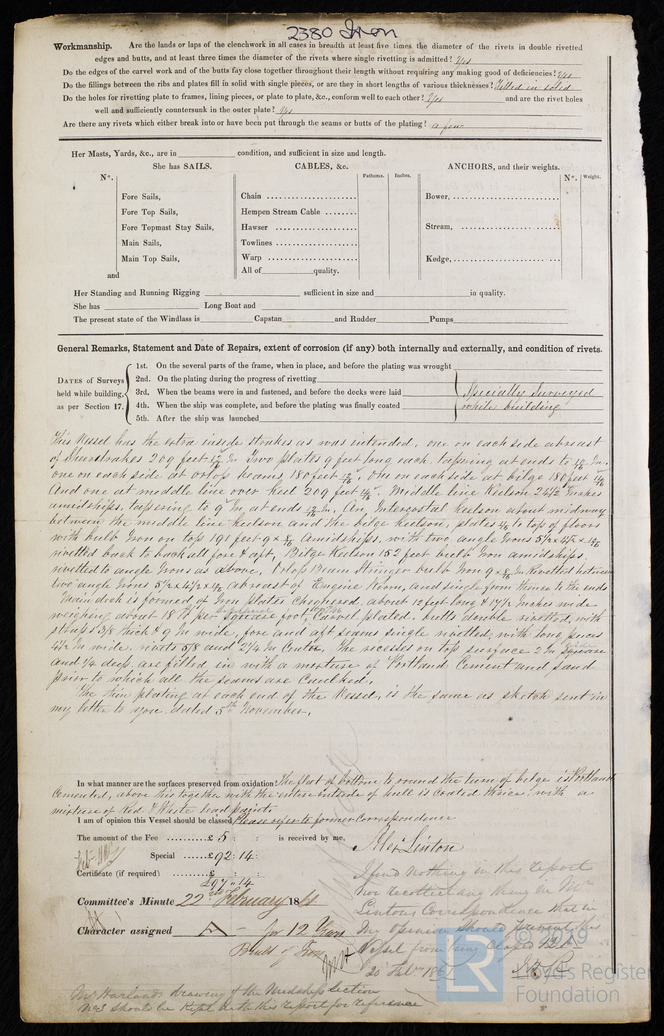 2380 Iron
Workmanship. Are the lands or laps of the clenchwork in all cases in breadth at least five times the diameter of the rivets in double rivetted
edges and butts, and at least three times the diameter of the rivets where single rivetting is admitted? Yes
Do the edges of the carvel work and of the butts fay close together throughout their length without requiring any making good of deficiencies? Yes
Do the fillings between the ribs and plates fill in solid with single pieces, or are they in short lengths of various thicknesses? Filled in solid
Do the holes for rivetting plate to frames, lining pieces, or plate to plate, &c., conform well to each other? Yes and are the rivet holes
well and sufficiently countersunk in the outer plate? Yes
Are there any rivets which either break into or have been put through the seams or butts of the plating? a few
Her Masts, Yards, &c., are in condition, and sufficient in size and length.
She has SAILS. CABLES, &c. ANCHORS, and their weights.
Nº. Fathoms. Inches. Nº. Weight.
Fore Sails, Chain Bower,
Fore Top Sails, Hempen Stream Cable
Fore Topmast Stay Sails, Hawser Stream,
Main Sails, Towlines
Main Top Sails, Warp Kedge,
and All of quality.
Her Standing and Running Rigging sufficient in size and in quality.
She has Long Boat and
The present state of the Windlass is Capstan and Rudder Pumps
General Remarks, Statement and Date of Repairs, extent of corrosion (if any) both internally and externally, and condition of rivets.
DATES of Surveys held while building, as per Section 17.
1st. On the several parts of the frame, when in place, and before the plating was wrought
2nd. On the plating during the progress of rivetting
3rd. When the beams were in and fastened, and before the decks were laid
4th. When the ship was complete, and before the plating was finally coated
5th. After the ship was launched
Specially Surveyed
while building
This Vessel has the extra inside strakes as was intended, one on each side abreast
of Sheerstrakes 209 feet In Two plates 9 feet long each, tapering at ends to In.
one on each side at orlop beams 180 feet, one on each side at bilge 180 feet
And one at middle line over keel 209 feet. Middle line Keelson 24½ Inches
amidships, tapering to 9 In at ends In, An Intercostal keelson about midway
between the middle line keelson and the bilge keelson, plates to top of floors
with bulb Iron on top 191 feet 9 x amidships, with two angle Irons
rivetted back to back all fore & aft, Bilge Keelson 152 feet bulb Iron amidships
rivetted to angle Irons as above, Orlop Beam Stringer bulb Iron 9 x In Rivetted between
two angle Irons abreast of Engine Room, and single from thence to the ends
Main deck is formed of Iron plates Chequered, about 12 feet long & 17½ Inches wide
weighing about 18 lb per square foot, Carvel plated, butts double rivetted, with
straps 3/8 thick & 9 In wide, fore and aft seams single rivetted, with long pieces
4½ In wide, rivets 5/8 and 2¼ In Centre. The recesses on top surface 2 In square
and ¼ deep, are filled in with a mixture of Portland Cement and sand
prior to which all the seams are Caulked.
The thin plating at each end of the Vessel, is the same as sketch sent in
my letter to you dated 5th November.
In what manner are the surfaces preserved from oxidation? The flat of bottom to round the turn of bilge is Portland
Cemented, above this together with the entire outside of hull is coated thrice with a
mixture of Red & White lead paints
I am of opinion this Vessel should be classed Please refer to former Correspondence
The amount of the Fee £ 5 : : is received by me,
Special £ 92 : 14 : Alex Linton
Certificate (if required) £ : :
£97 " 14
Committee's Minute 22nd February 1861
Character assigned A - for 12 Years
Built of Iron
I find nothing in this report
nor recollect any thing in Mr
Lintons Correspondence that in
my opinion should prevent this
Vessel from being Classed 12 A
20 Feb 1861
Mr Harlands drawing of the Midship section
No 3 should be kept with this report for reference
© 2019
LR
Lloyd's Register
Foundation